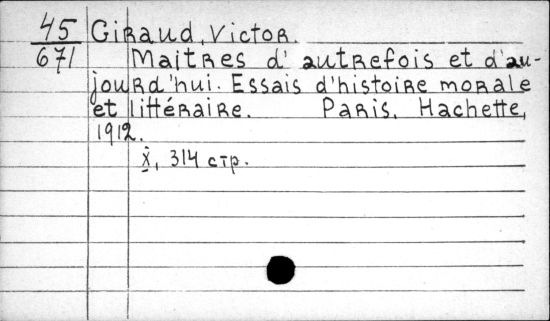 45 Giraud, Victor.
671 Maitres d'autrefois et d'au-
jourd'hui. Essais d'histoire morale
et littéraire. Paris, Hachette,
1912.
X, 314 стр.